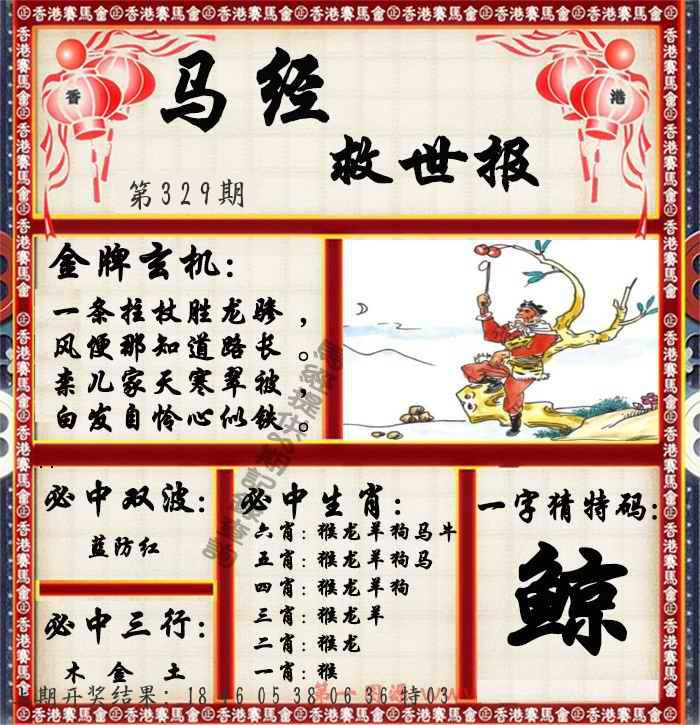 香港賽馬會
香
港
马经
救世报
第329期
金牌玄机：
一条拄杖胜龙骖，
风便那知道路长。
亲儿家天寒翠被，
白发自怜心似铁。
必中双波：
蓝防红
必中三行：
木 金 土
必中生肖：
六肖：猴龙羊狗马牛
五肖：猴龙羊狗马
四肖：猴龙羊狗
三肖：猴龙羊
二肖：猴龙
一肖：猴
一字猜特码：
鲸
期开奖结果：18 46 05 38 06 36 特03